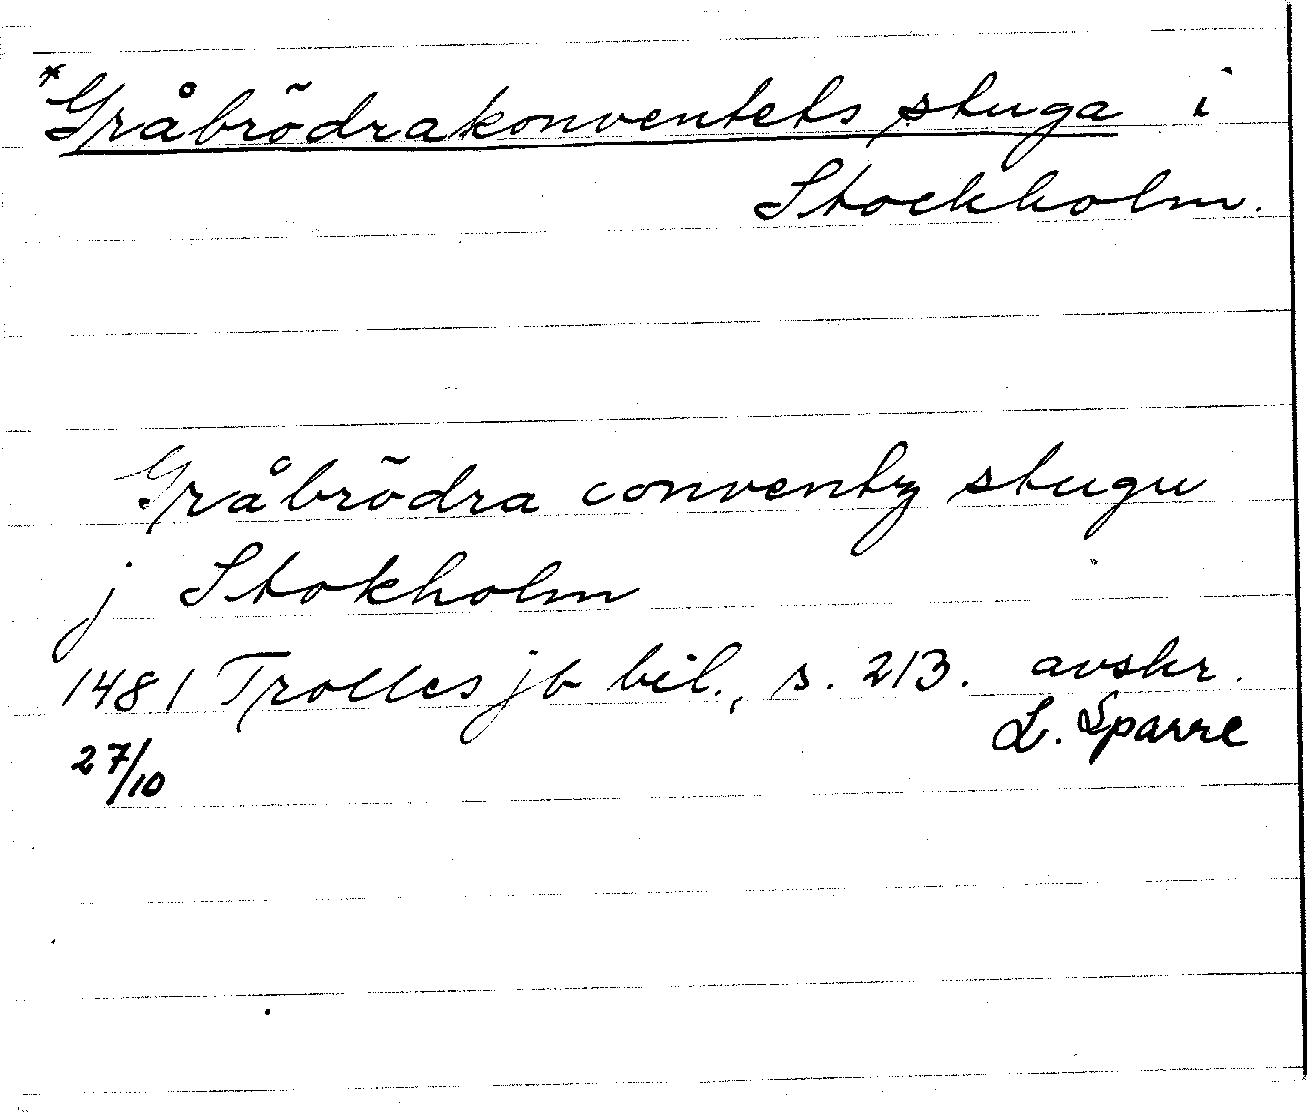 *Gråbrödrakonventets stuga i
Stockholm.
Gråbrödra conventz stugu
j Stokholm
1481 Trolles jb bil., s. 213. avskr.
27/10 L. Sparre